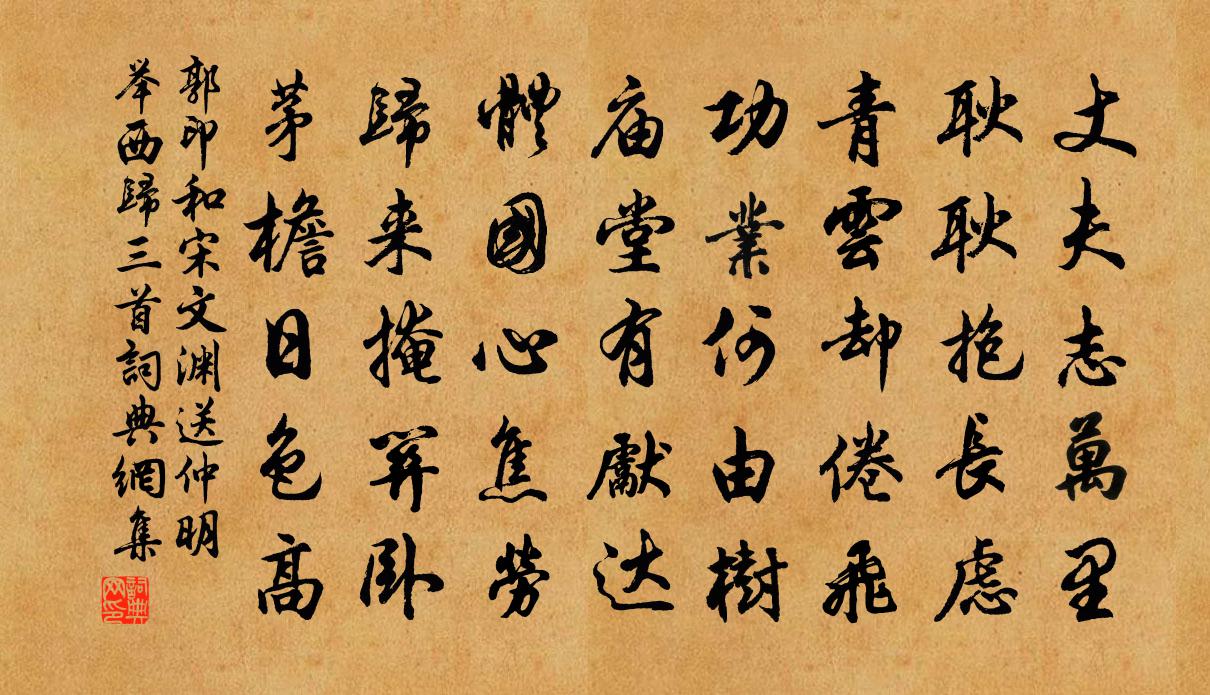 丈夫志萬里
耿耿抱長慮
青雲却倦飛
功業何由樹
庙堂有獻达
體國心焦勞
歸来掩羿卧
茅檐日色高
郭印和宋文渊送仲明
举西歸三首詞典網集
詞典网印